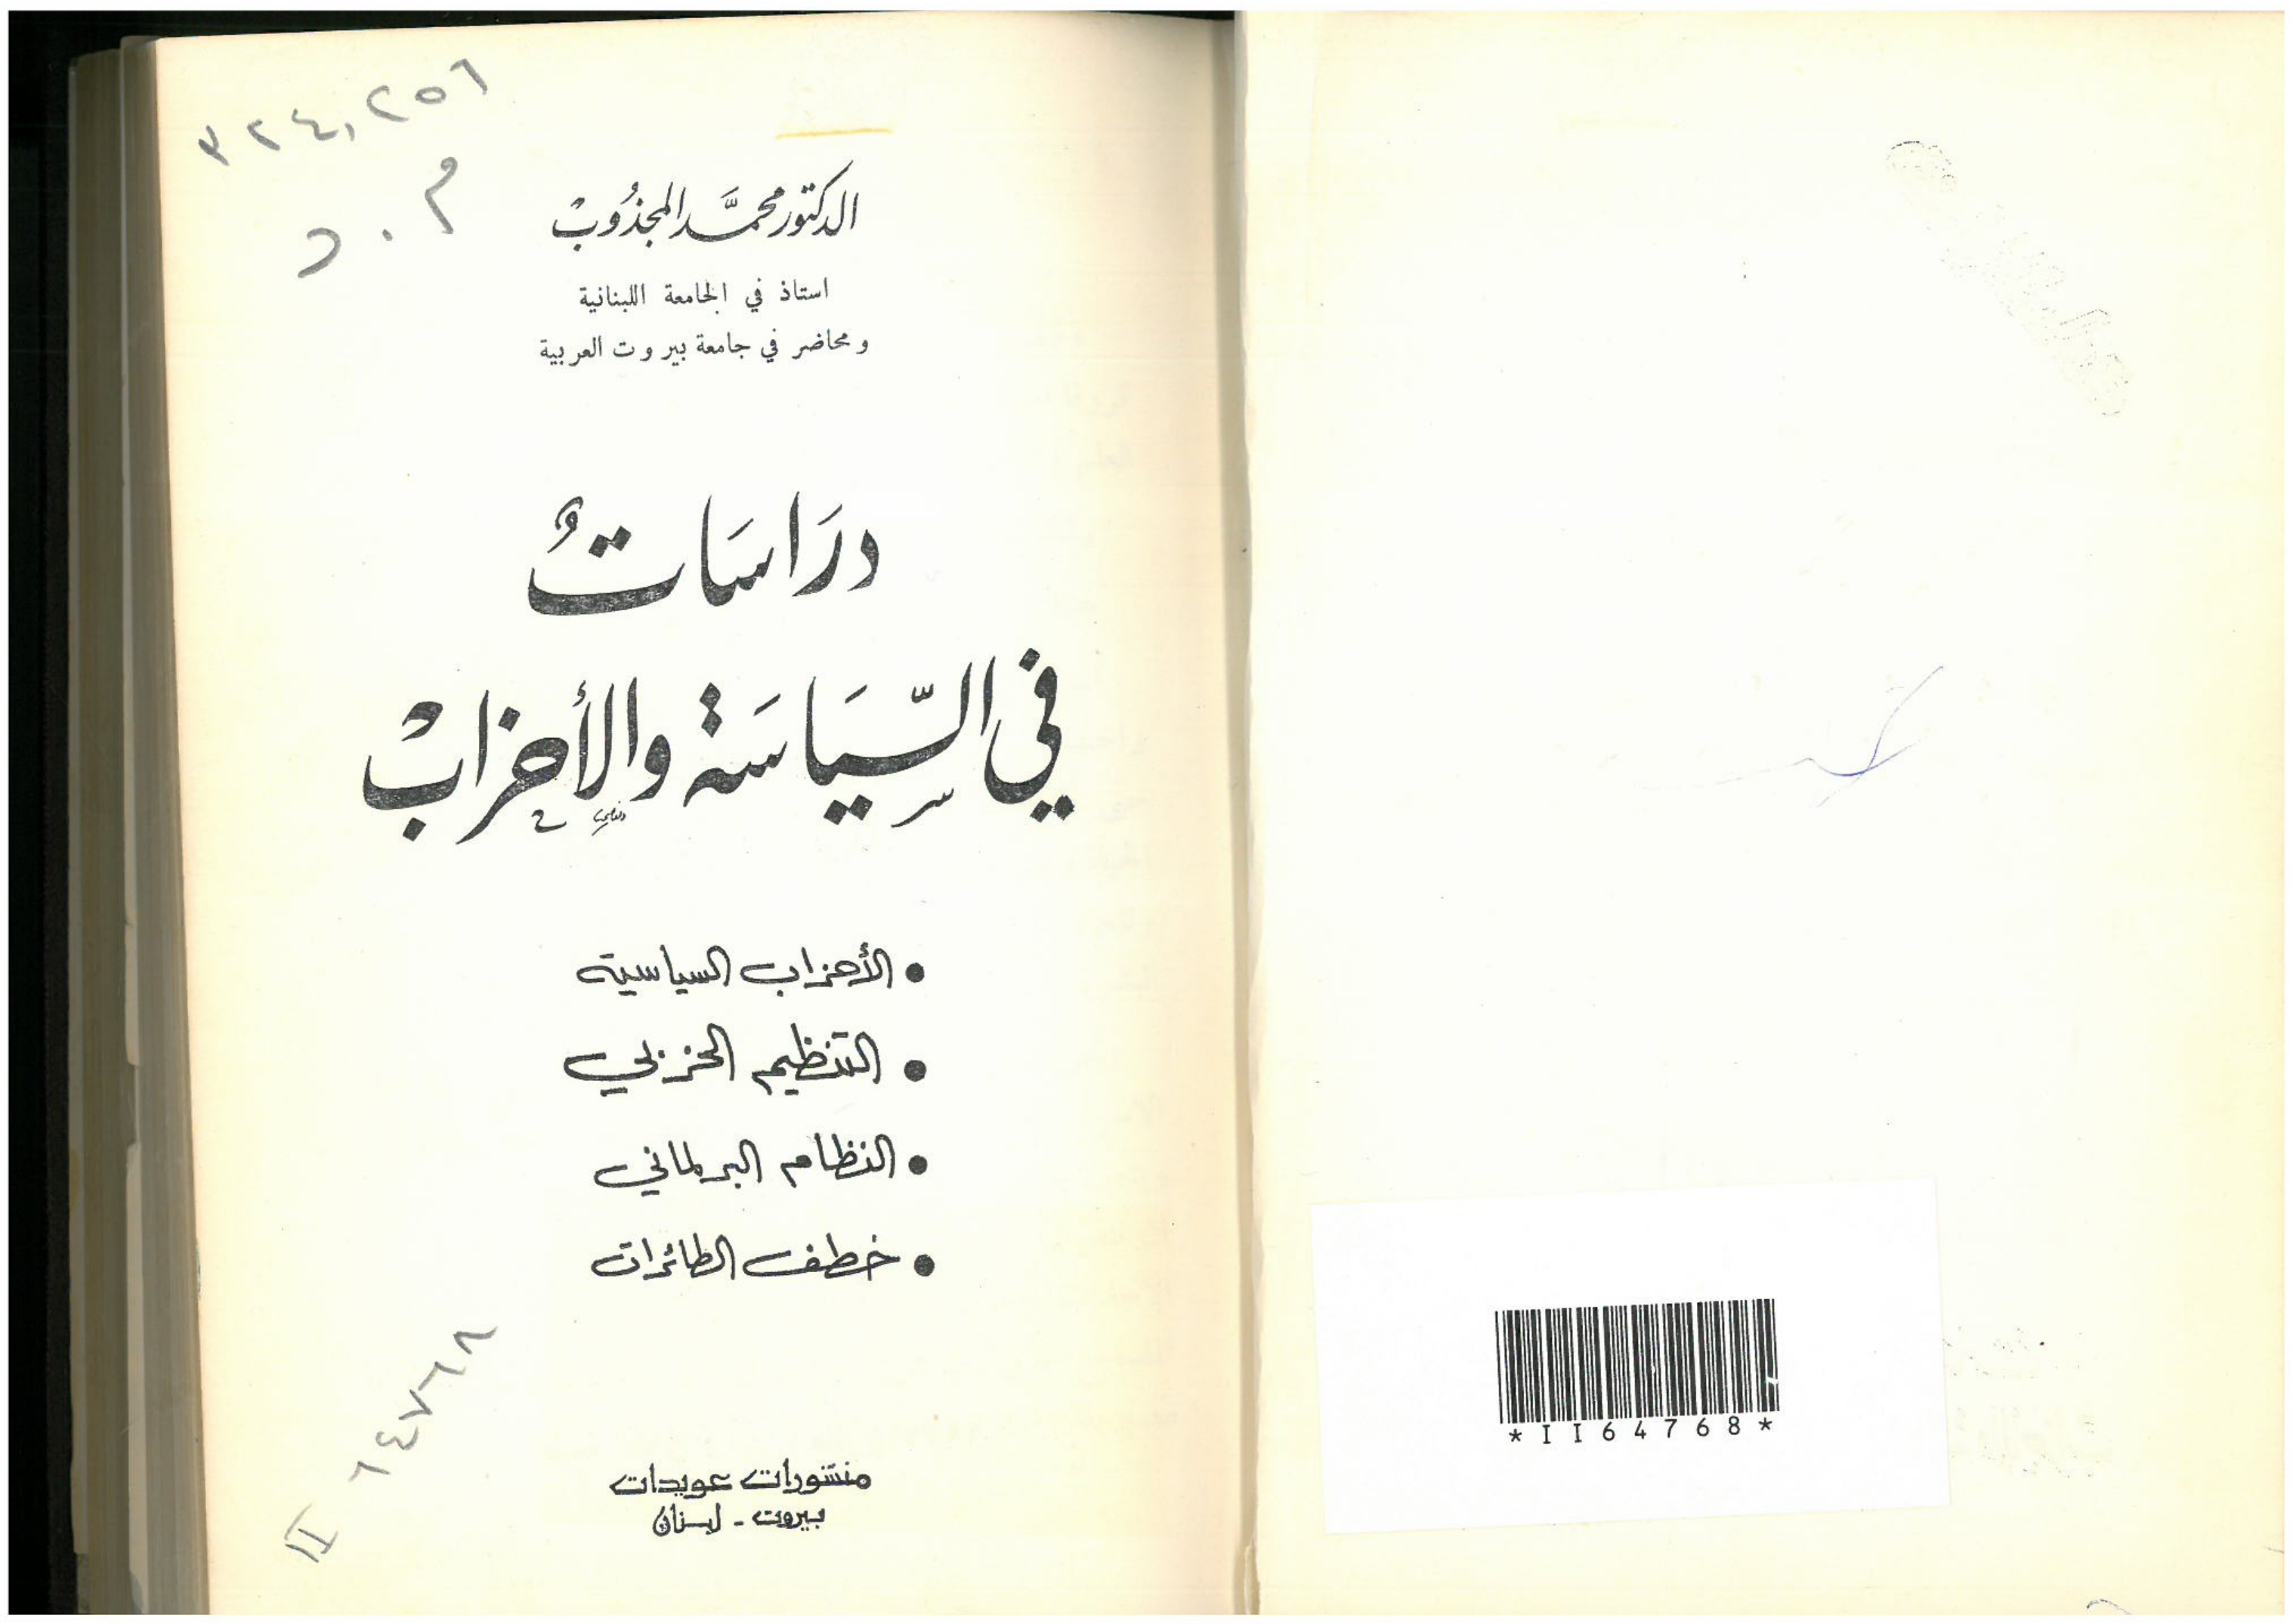 ٣٢٤,٢٥٦
م . د
الدكتور محمَّد المجذُوبْ
استاذ في الجامعة اللبنانية
ومحاضر في جامعة بيروت العربية
درَاسَاتٌ
في السّيَاسَة والأحزابْ
• الأحزاب السياسية
• التنظيم الحزبي
• النظام البرلماني
• خطف الطائرات
II ٦٤٧٦٨
منشورات عويدات
بيروت - لبنان
*II64768*